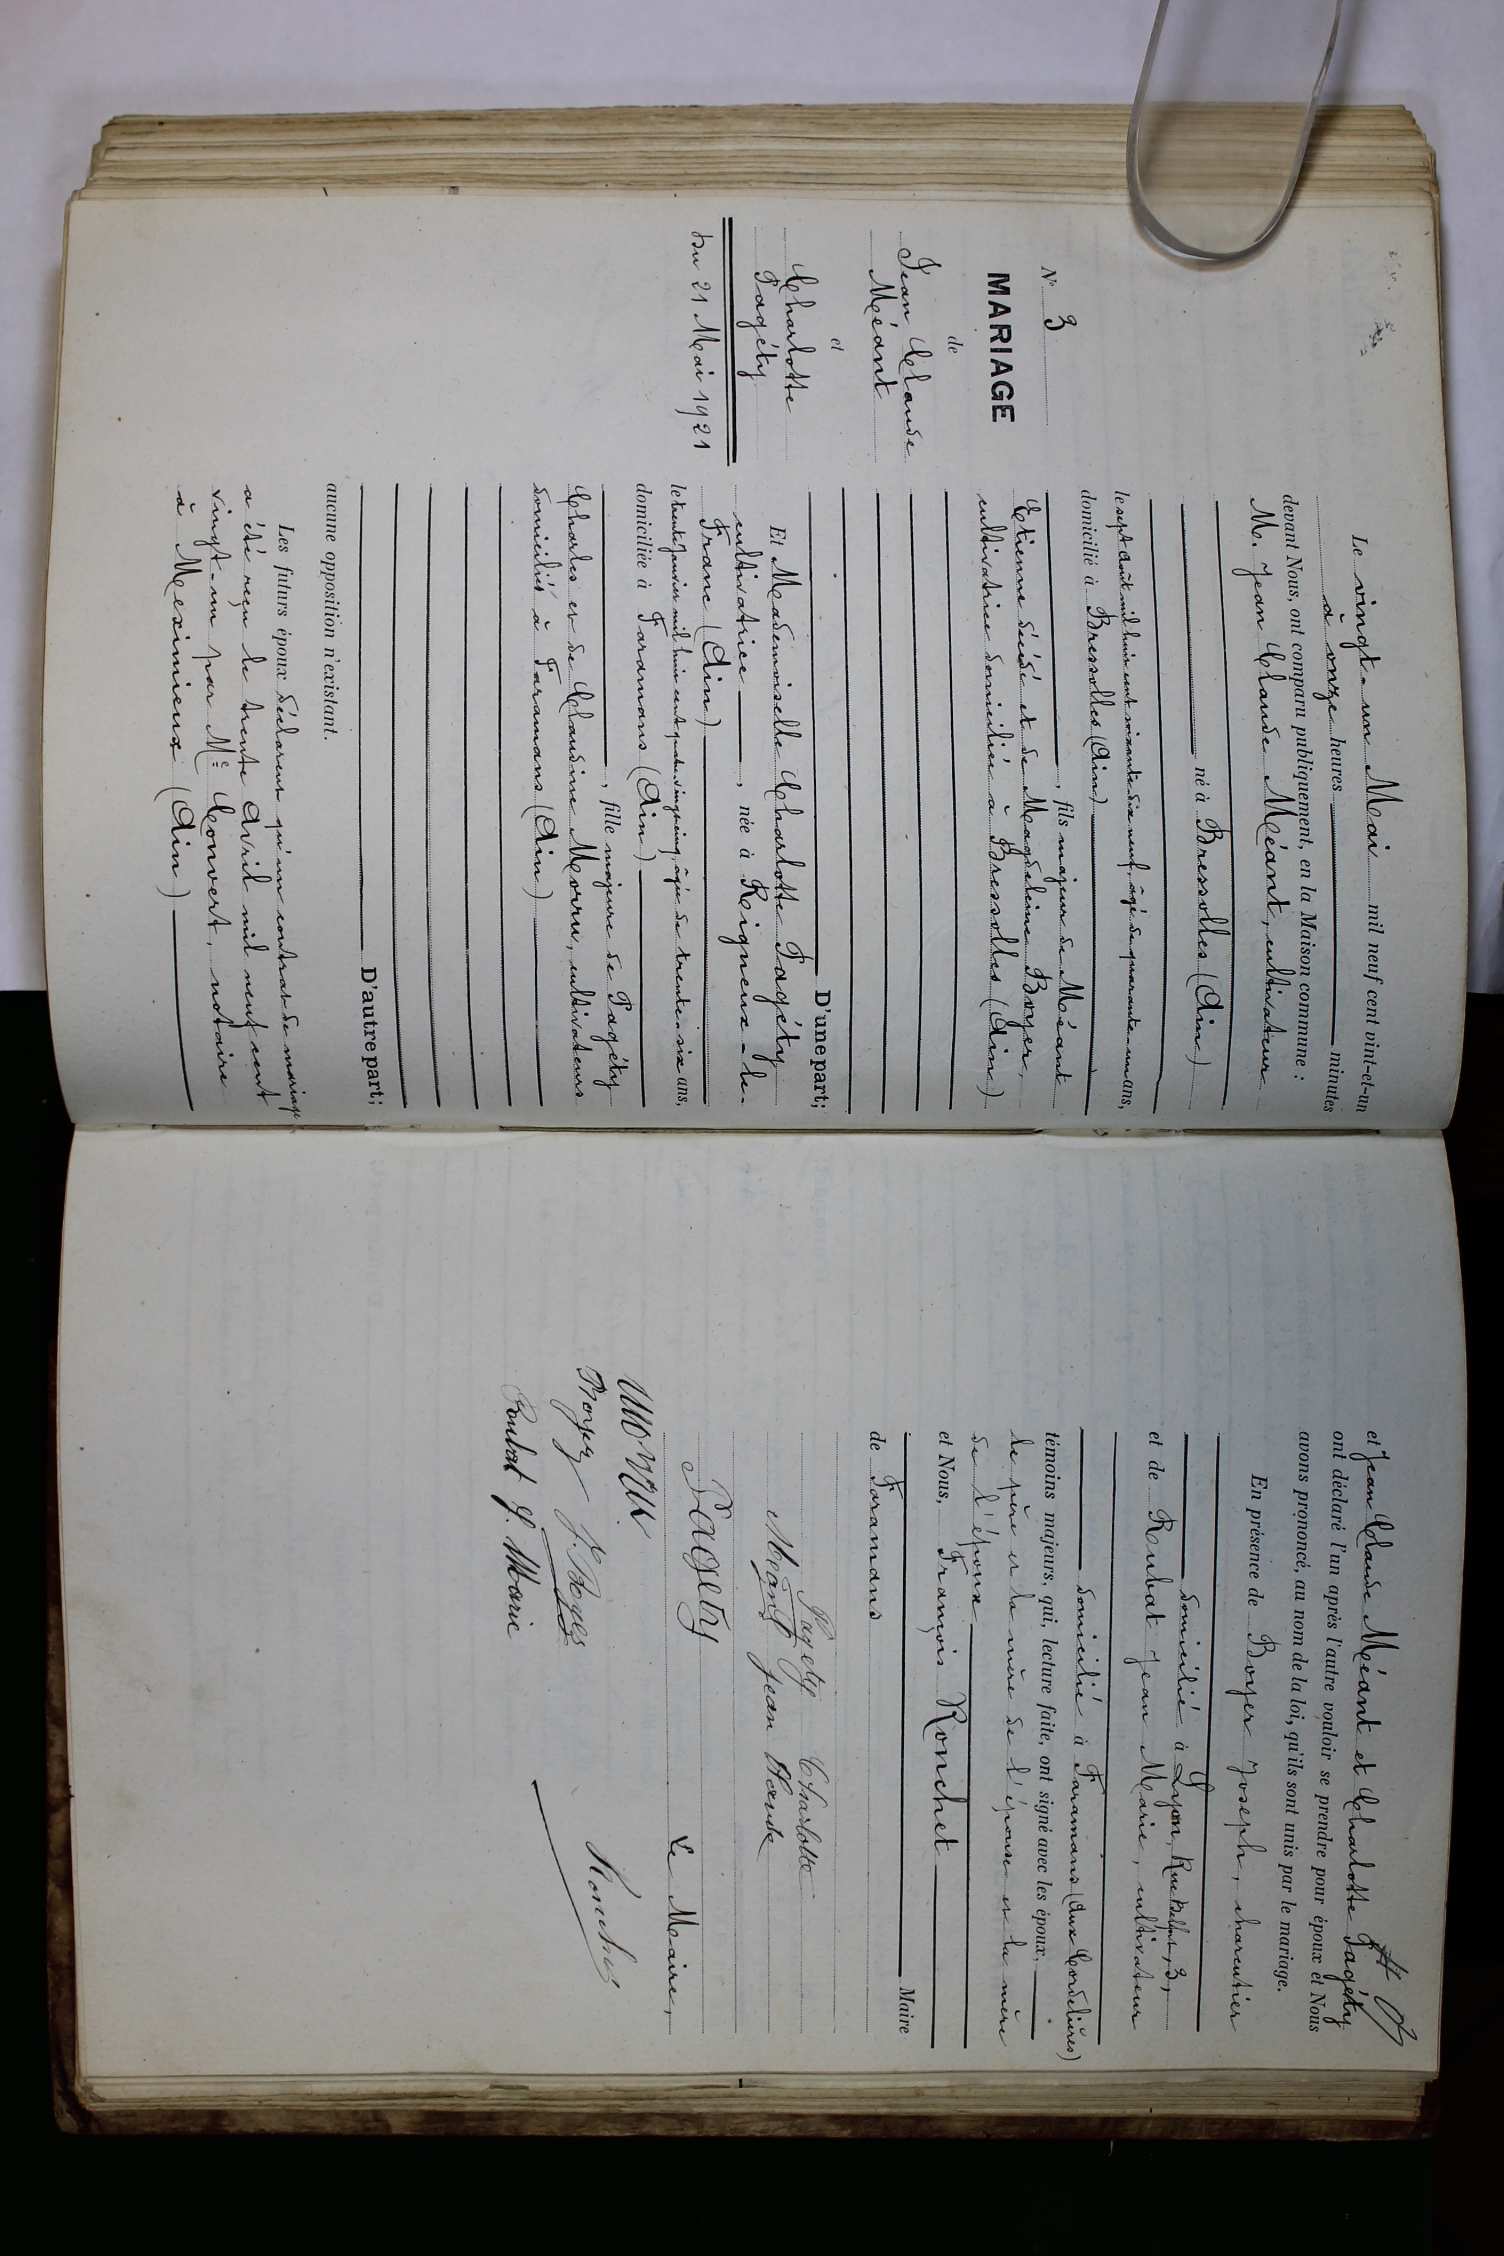 N° 3
MARIAGE
de
Jean Claude
Méant
et
Charlotte
Pagéty
Du 21 Mai 1921
Le vingt-un Mai mil neuf cent vint-et-un
à onze heures minutes
devant Nous, ont comparu publiquement, en la Maison commune :
M. Jean Claude Méant, cultivateur
né à Bressolles (Ain)
le sept Août mil huit cent soixante dix neuf, âgé de quarante-un ans,
domicilié à Bressolles (Ain)
, fils majeur de Méant
Etienne décédé et de Magdeleine Boyer,
cultivatrice domiciliée à Bressolles (Ain)
D'une part;
Et Mademoiselle Charlotte Pagéty
cultivatrice , née à Rigneux-le-
Franc (Ain)
le trente Janvier mil huit cent quatre vingt cinq, âgée de trente-six ans,
domiciliée à Faramans (Ain)
, fille majeure de Pagéty
Charles et de Claudine Morru, cultivateurs
domiciliés à Faramans (Ain)
D'autre part;
aucune opposition n'existant.
Les futurs époux déclarent qu'un contrat de mariage
a été reçu le trente Avril mil neuf cent
vingt-un par Me Convert, notaire
à Meximieux (Ain)
et Jean Claude Méant et Charlotte Pagéty
ont déclaré l'un après l'autre vouloir se prendre pour époux et Nous
avons prononcé, au nom de la loi, qu'ils sont unis par le mariage.
En présence de Boyer Joseph, charcutier
domicilié à Lyon, Rue Belfort, 3,
et de Rubat Jean Marie, cultivateur
domicilié à Faramans (Aux Cordelières)
témoins majeurs, qui, lecture faite, ont signé avec les époux,
le père et la mère de l'épouse et la mère
de l'époux
et Nous, François Ronchet
Maire
de Faramans
Pagéty Charlotte
Méant Jean Claude
Pagety
Le Maire,
Morru
Boyer J. Boyer
Ronchet
Rubat J. Marie